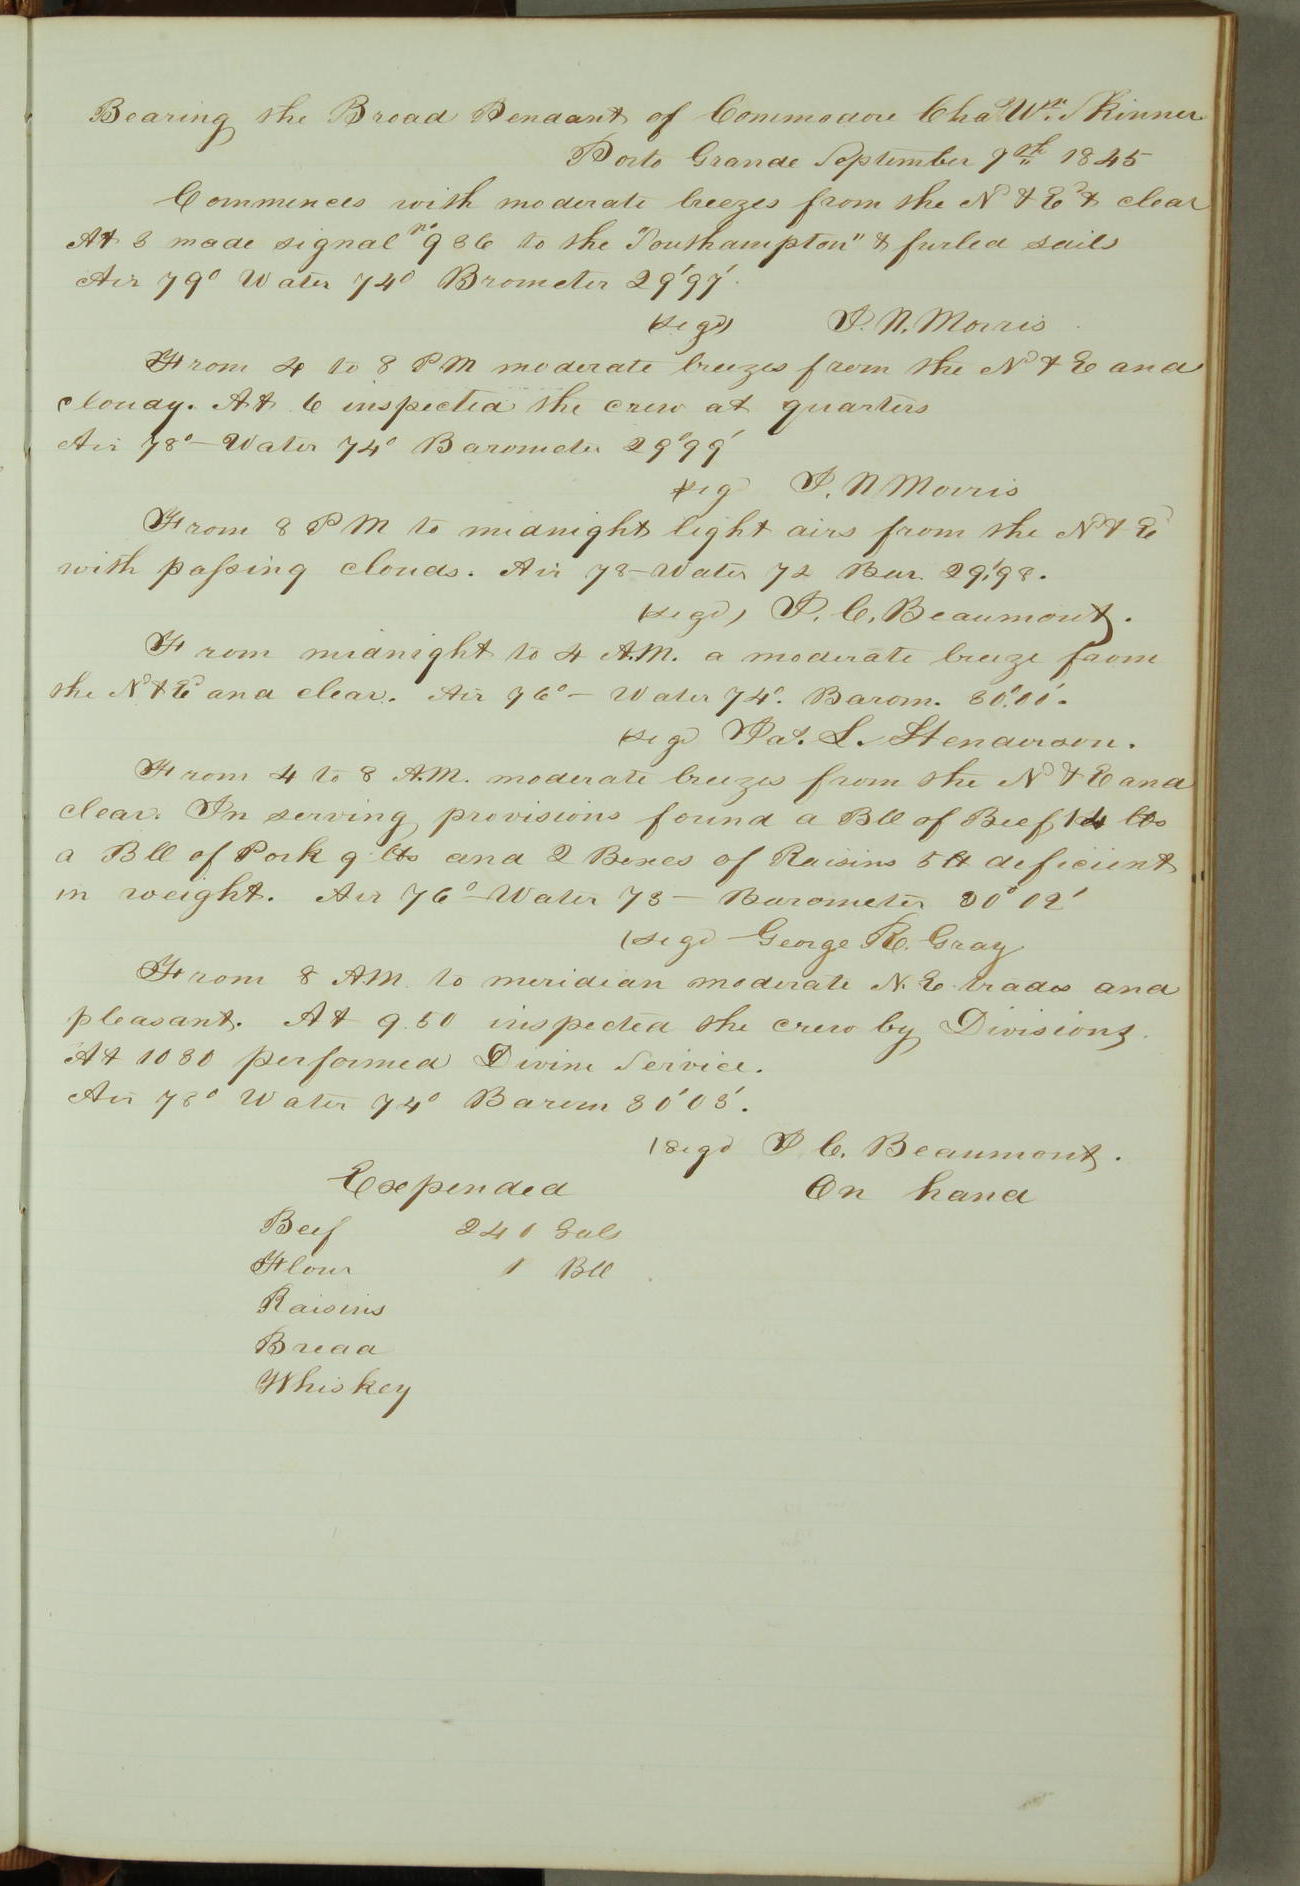 Bearing the Broad Pendant of Commodore Cha.s Wm. Skinner
Porto Grande September 7th 1845
Commences with moderate breezes from the N & Ed & clear
At 3 made signal no 936 to the "Southampton" & furled sails
Air 79° Water 74° Brometer 29°97'
(sigd) J. N. Morris
From 4 to 8 PM moderate breezes from the Nd & E and
cloudy. At 6 inspected the crew at quarters
Air 78° - Water 74° Barometer 29°99'
sigd J. N Morris
From 8 PM to midnight light airs from the Nd & Ed
with passing clouds. Air 78 - Water 72 Bar. 29°98.
(sigd) J. C. Beaumont.
From midnight to 4 A.M. a moderate breeze from
the Nd & Ed and clear. Air 76° - Water 74°. Barom. 30°00'.
(sigd Ja.s L. Henderson.
From 4 to 8 A.M. moderate breezes from the Nd & E and
clear. In serving provisions found a Bll of Beef 14 lbs
a Bll of Pork 9 lbs and 2 Boxes of Raisins 5 lb deficient
in weight. Air 76° - Water 73 - Barometer 30°02'
(sigd George R. Gray
From 8 AM. to meridian moderate N. E. trades and
pleasant. At 9.50 inspected the crew by Divisions.
At 10 30 performed Divine Service.
Air 78° Water 74° Barom 30°03'.
(sigd J C. Beaumont.
Expended On hand
Beef 240 Gals
Flour 1 Bll
Raisins
Bread
Whiskey